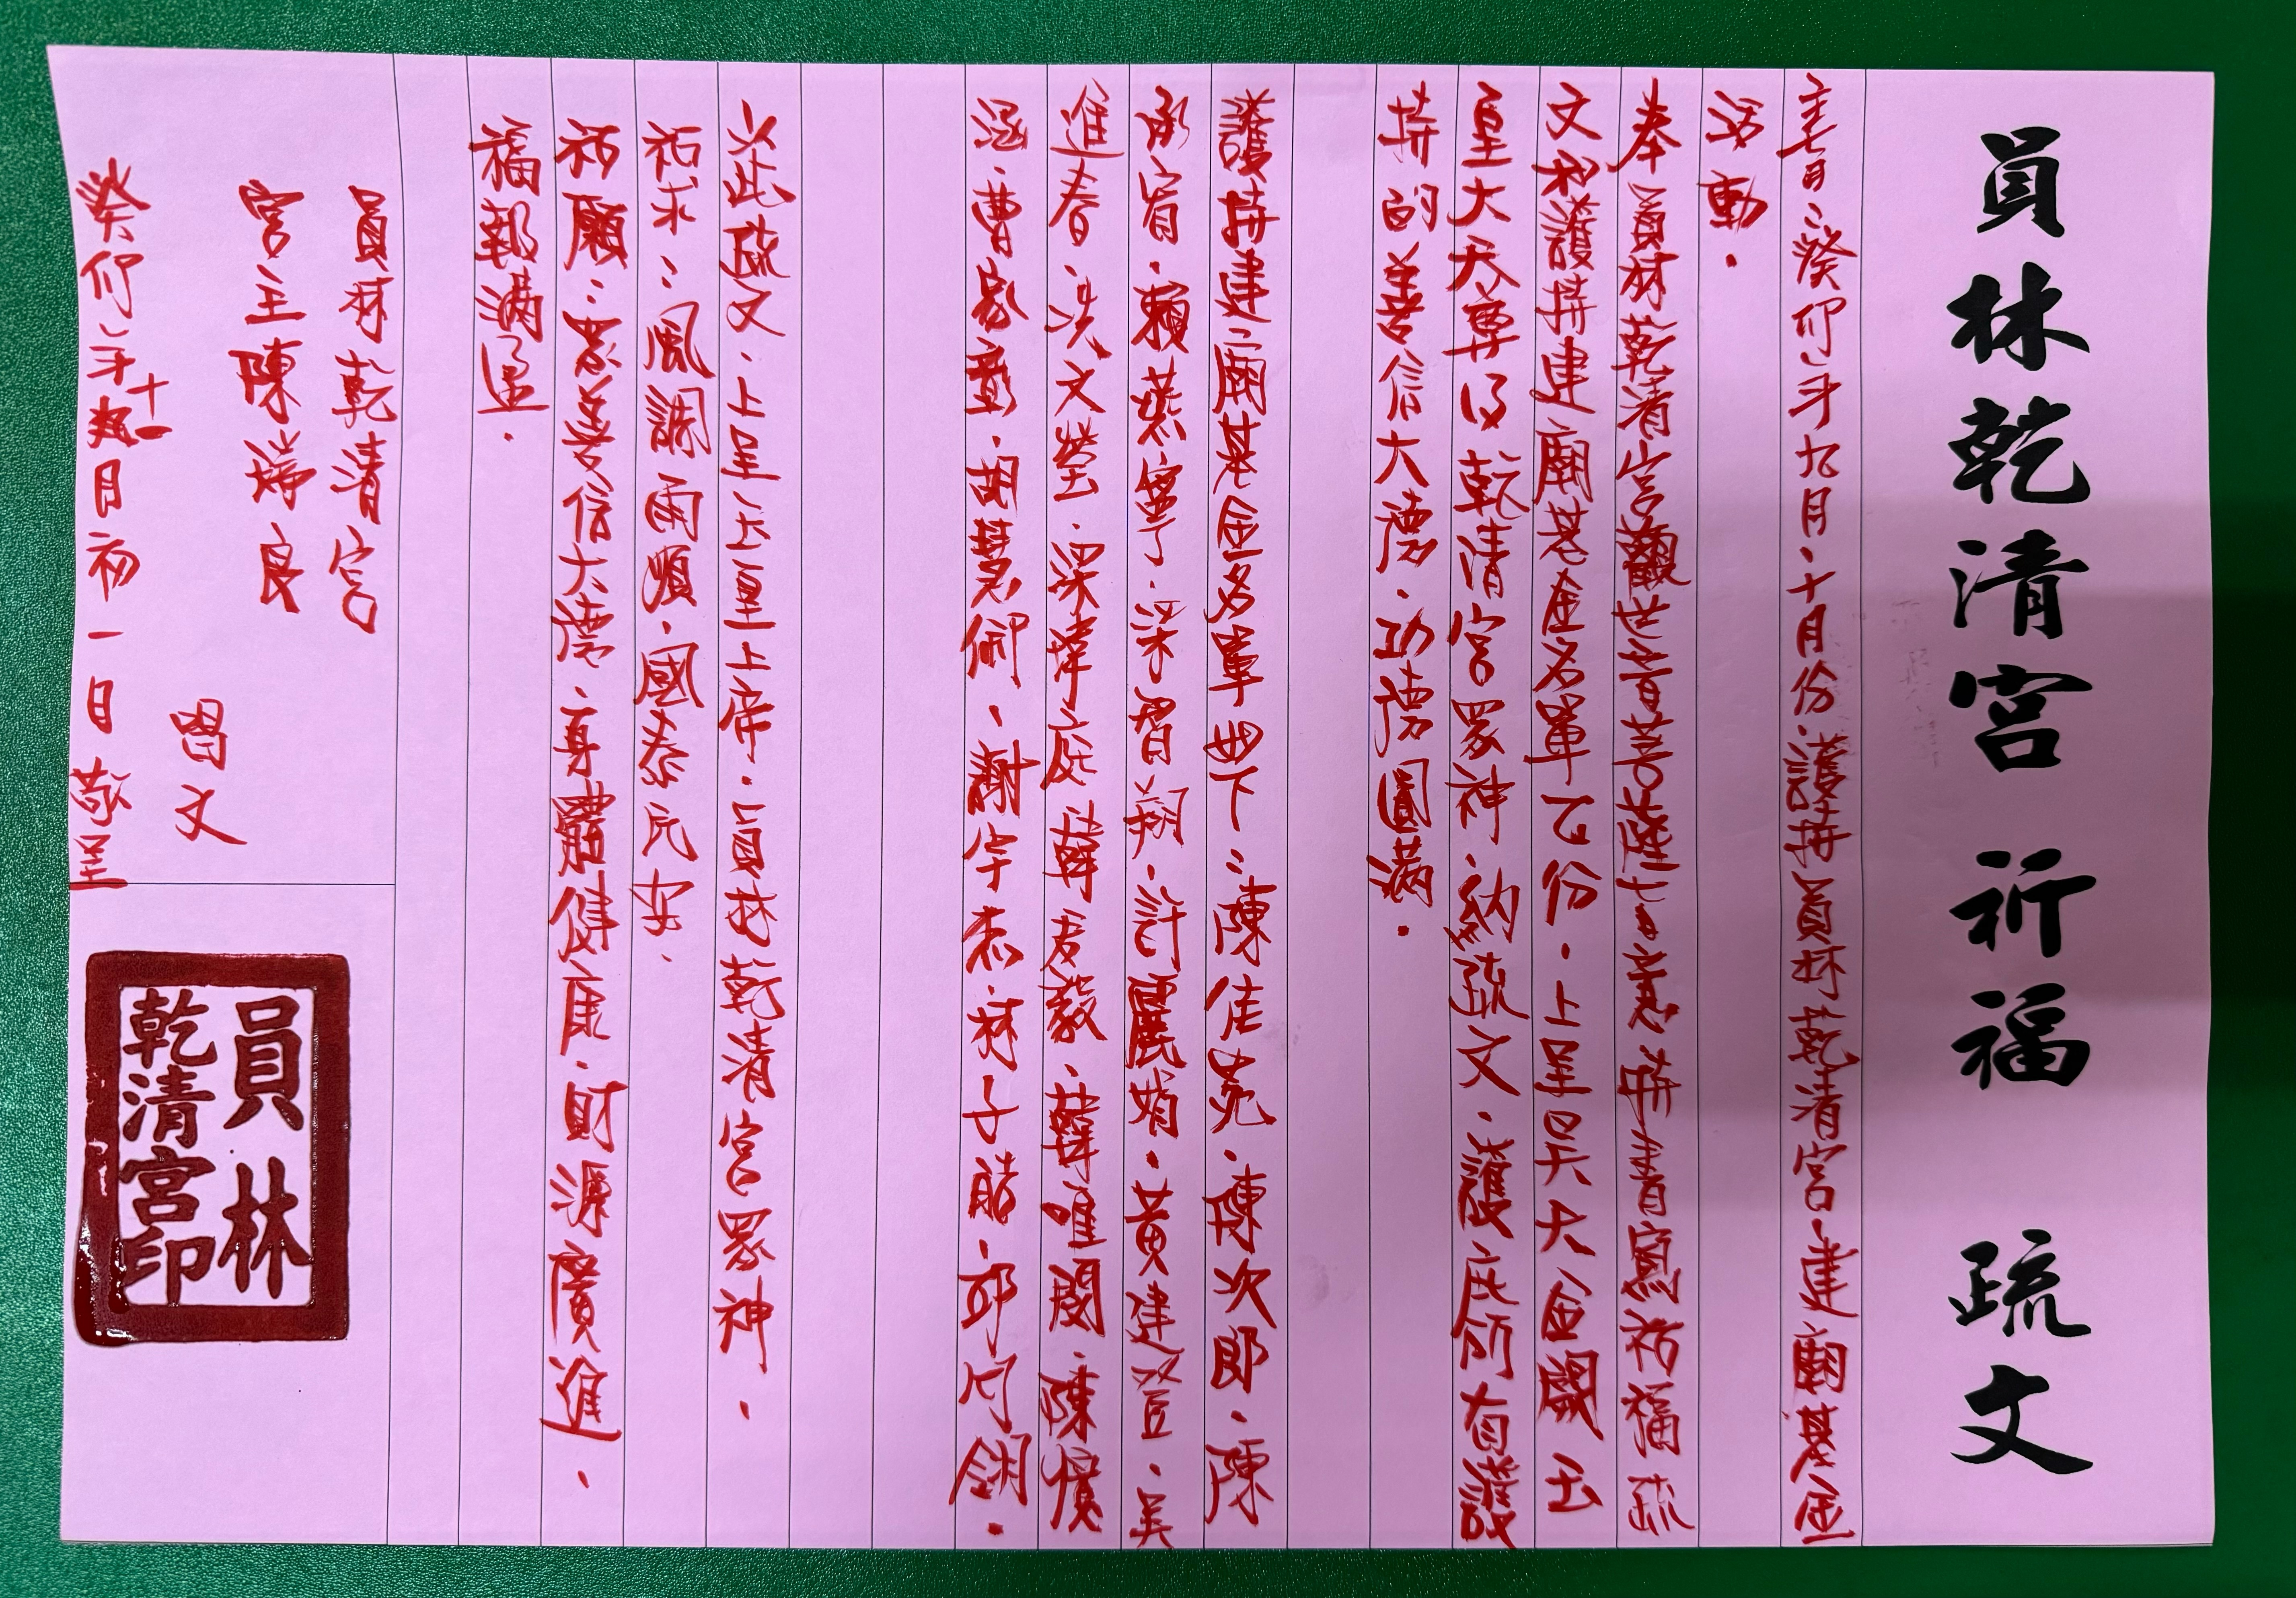 員林乾清宮 祈福 疏文
主旨：癸卯年九月、十月份、護持員林乾清宮、建廟基金
活動.
奉員林乾清宮觀世音菩薩 慈 并書寫祈福疏
文和護持建廟基金名單乙份．上呈昊天金闕玉
皇大天尊及乾清宮眾神．納疏文．護庇所有護
持的善信大德．功德圓滿．
護持建廟基金名單如下：陳佳菀．陳次郎．陳
承宥．賴燕寧．梁習翔．許麗娟．黃建 ．吳
進春．洪文瑩．梁瑋庭 韓君毅．韓唯閎．陳
涵．曹家彰．胡慧 ．謝宇 ．林子皓．邱 ．
以此疏文．上呈玉皇上帝．員林乾清宮眾神．
祈求：風調雨順．國泰民安．
祈願：眾善信大德：身體健康．財源廣進．
福報滿盈．
員林乾清宮
宮主陳瑞良
 文
癸卯年十一月初一日 敬呈
員林
乾清宮印